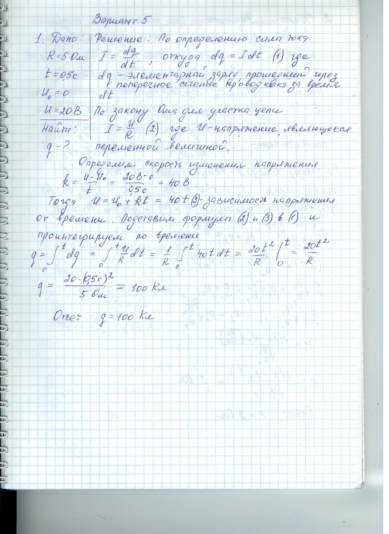 Вариант 5
1. Дано Решение: По определению сила тока
R=5 Ом I = dq/dt, откуда dq = I dt (1) где
t=0,5с dq - элементарный заряд, прошедший через
поперечное сечение проводника за время
U₀=0 dt
U=20В По закону Ома для участка цепи
Найти: I = U/R (2) где U-напряжение, являющееся
q-? переменной величиной.
Определим скорость изменения напряжения
k = U-U₀/t = 20В-0/0,5с = 40В
Тогда U = U₀ + kt = 40t (3)-зависимость напряжения
от времени. Подставим формулы (2) и (3) в (1) и
проинтегрируем по времени
q = ∫₀ᵗ dq = ∫₀ᵗ U/R dt = 1/R ∫₀ᵗ 40t dt = 20t²/R |₀ᵗ = 20t²/R
q = 20·(0,5с)²/5 Ом = 100 Кл
Ответ q=100 Кл